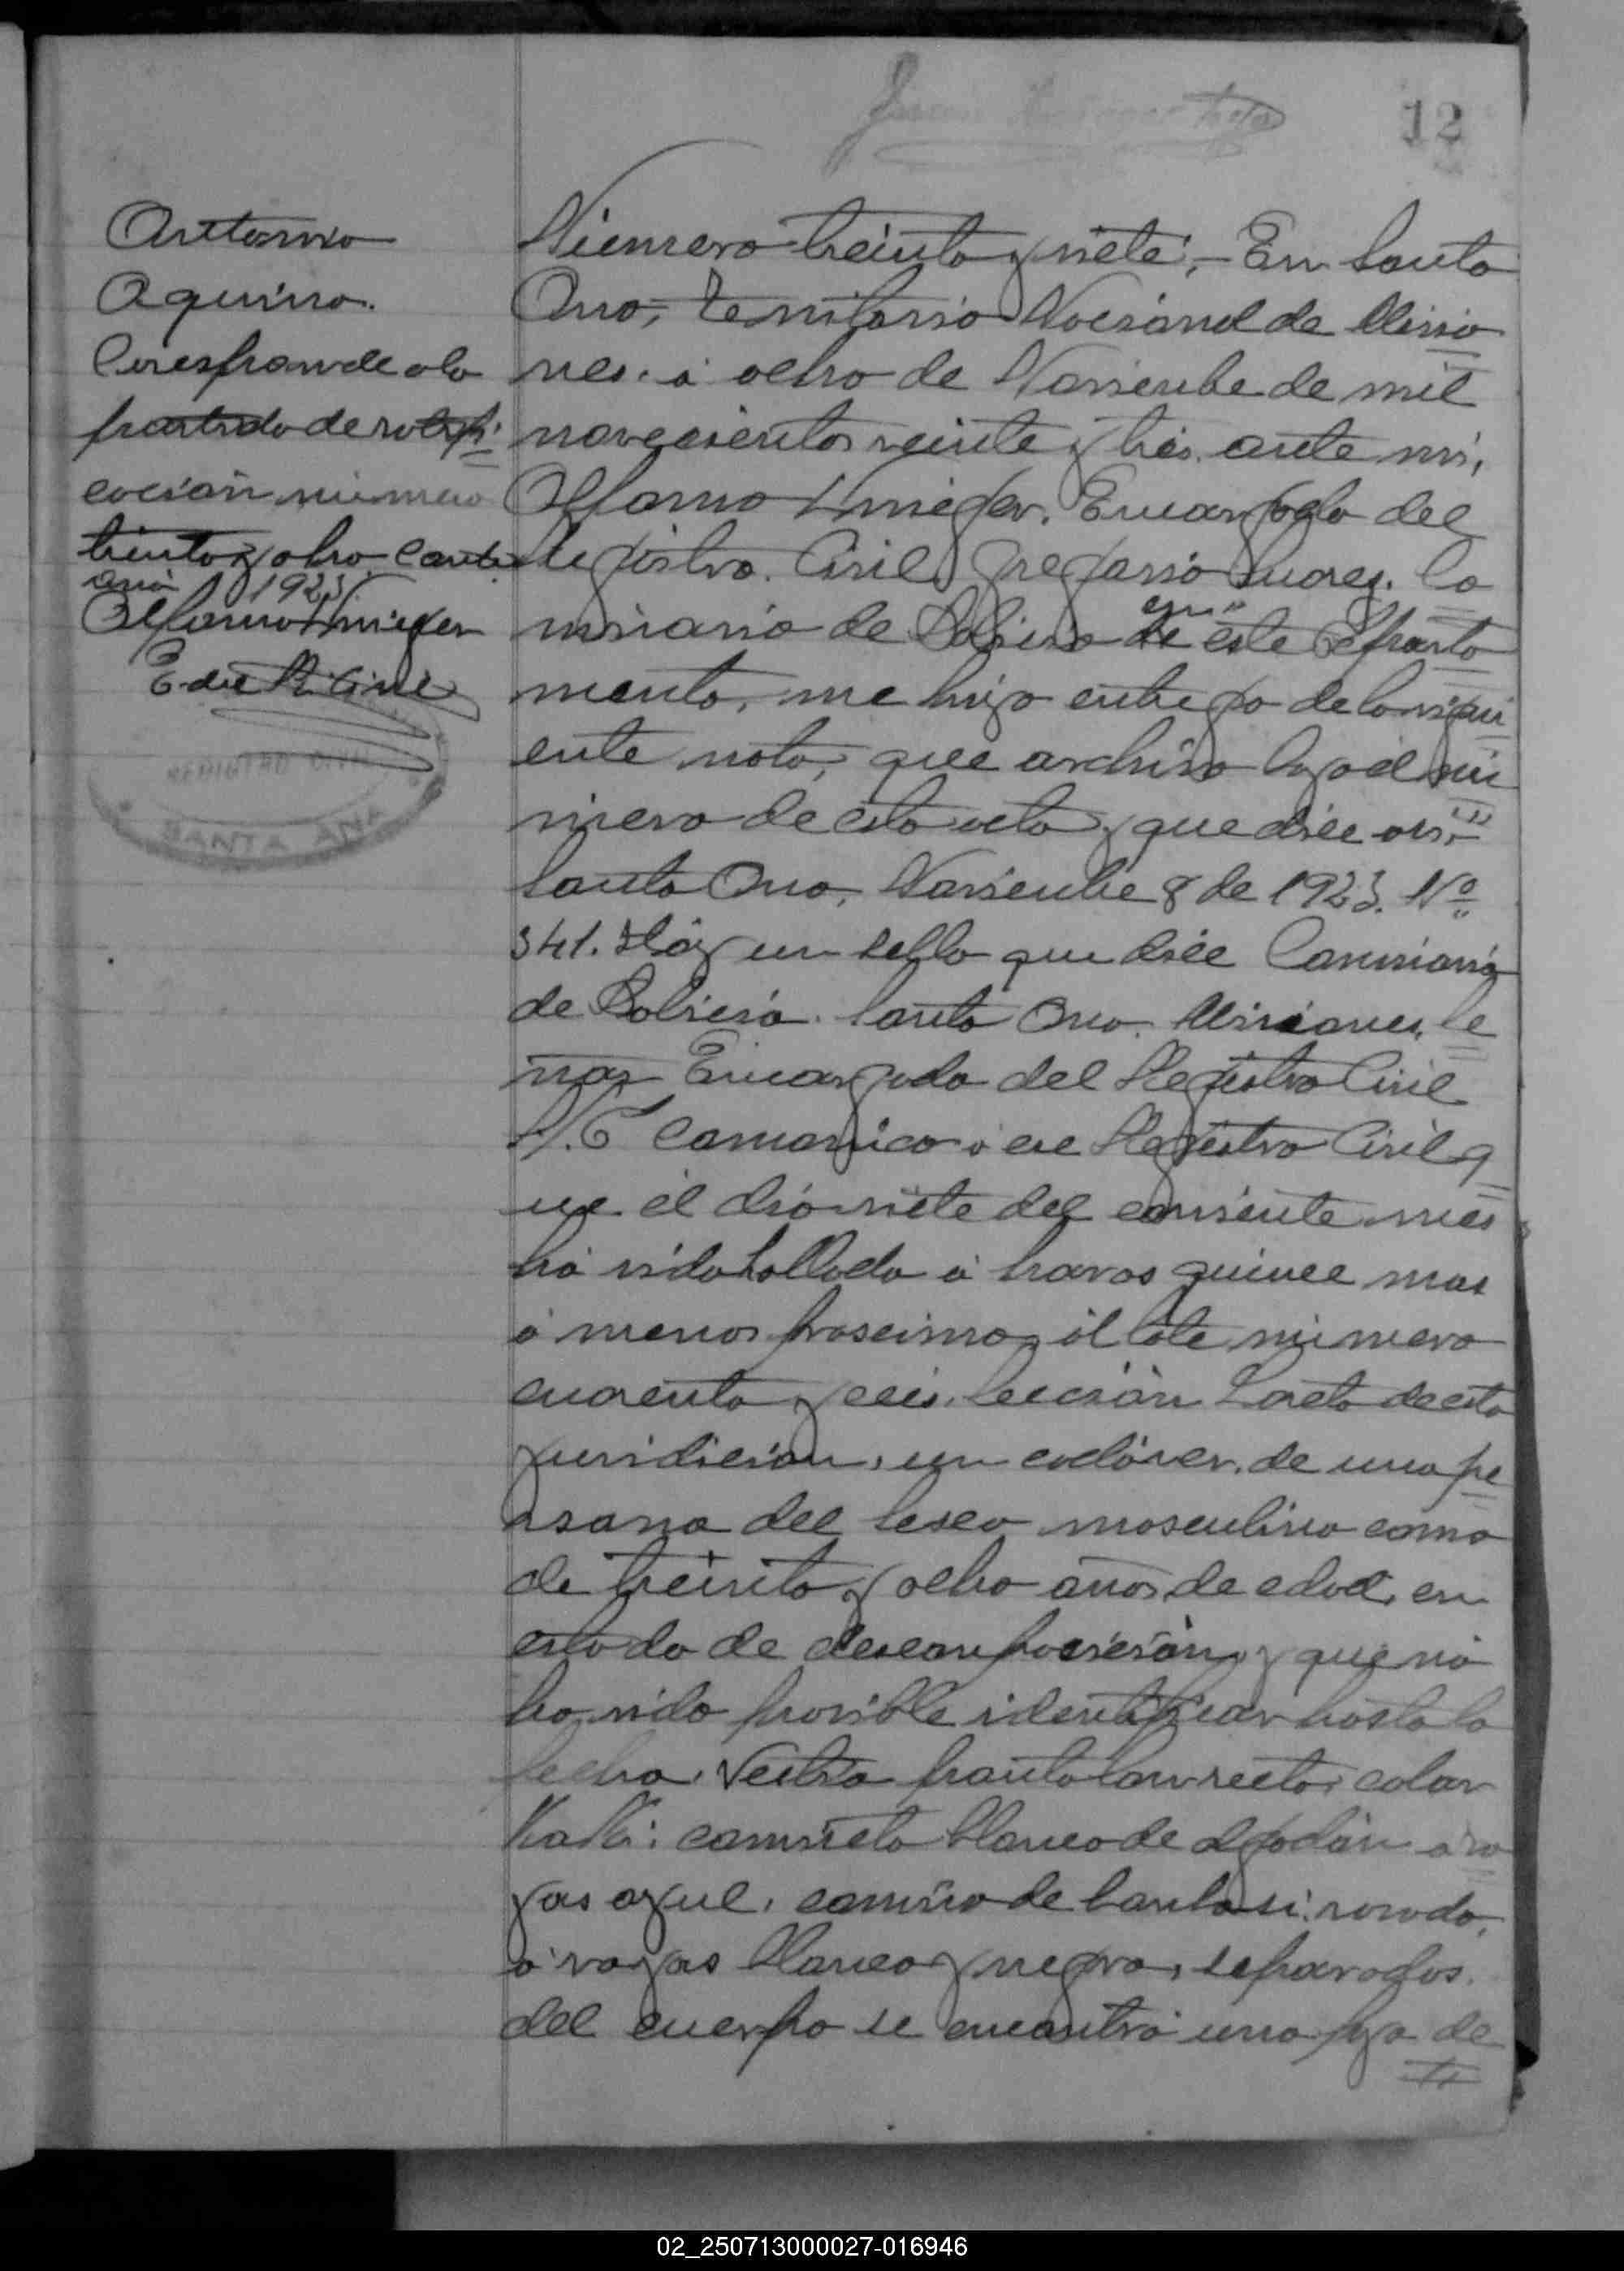 12
Antonio
Aquino.
Coresponde a la
partida de ratifi
cación número
treinta y ocho. Conste
año 1923
Alfonso
E. del R. Civil
REGISTRO CIVIL
SANTA ANA
Número treinta y siete,- En Santa
Ana, Territorio Nacional de Misio
nes. á ocho de Noviembe de mil
novecientos veinte y trés. ante mi,
Alfonso Encargado del
Registro. Civil, Gregorio Suarez. Co
misario de Policia de en este Departa
mento, me hizo entrega de la sigui
ente nota, que archivo bajo el nu
mero de esta acta y que dice asi,-"
Santa Ana, Noviembe 8 de 1923. Nº
341. Háy un sello que dice Comisaria
de Policia. Santa Ana. Misiones. Se
ñor Encargado del Registro Civil
S/C Comonico á ese Registro Civil q
ue el dia siete del corriente mes
há sido hallado á horas quince mas
ó menos procsimo al lote número
cuarenta y seis. Sección Loreto de esta
juridicion, un cadáver. de una pe
rsona del secso masculino como
de treinta y ocho años de edad, en
estado de descomposición y que nó
ha sido posible identificar hasta la
fecha. Vestia pantalon recto color
KaKi: camiseta blanca de algodón á ra
yas azul, camisa de rosada,
á rayas blanca y negra, separados.
del cuerpo se encontró una faja de
02_250713000027-016946